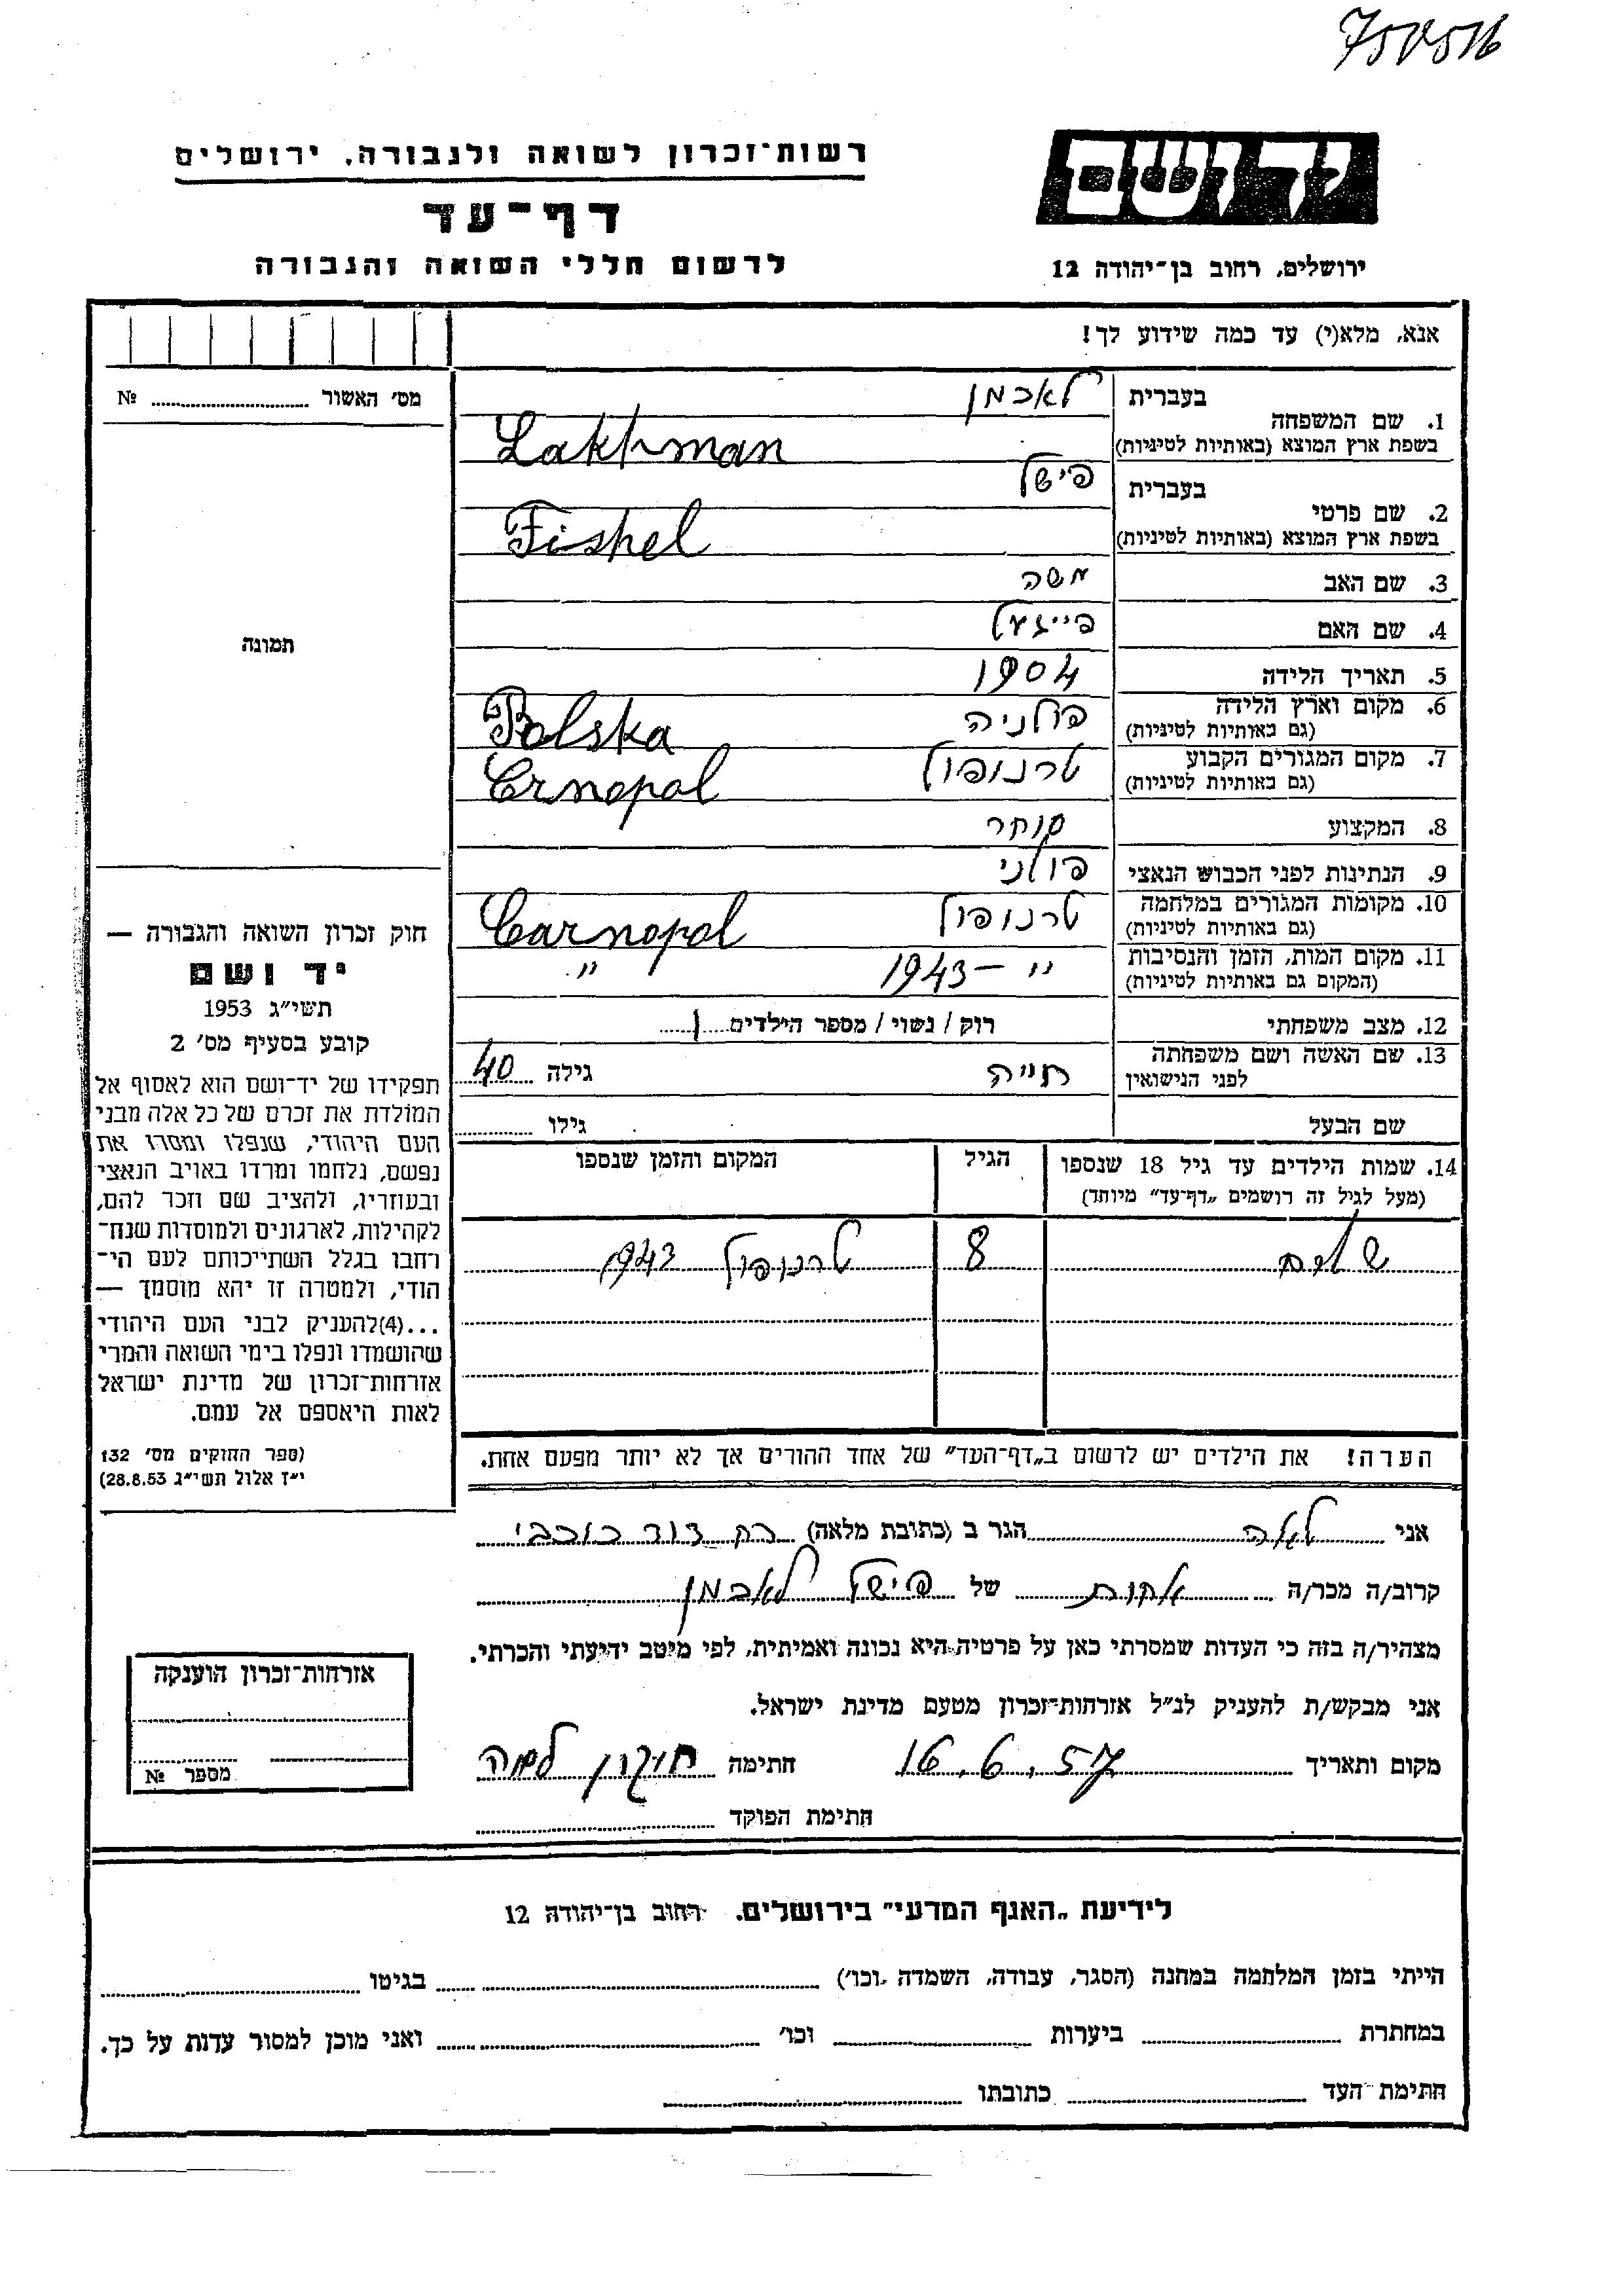 רשות־זכרון לשואה ולגבורה, ירושלים
דף־עד
לרשום חללי השואה והגבורה
יד ושם
ירושלים, רחוב בן־יהודה 12
אנא, מלא(י) עד כמה שידוע לך!
מס' האשור № ........
תמונה
1. שם המשפחה בעברית לאכמן
בשפת ארץ המוצא (באותיות לטיניות) Lakhman
2. שם פרטי בעברית פישל
בשפת ארץ המוצא (באותיות לטיניות) Fishel
3. שם האב משה
4. שם האם פייגל
5. תאריך הלידה 1904
6. מקום וארץ הלידה פולניה Polska
(גם באותיות לטיניות)
7. מקום המגורים הקבוע טרנופול Crnopol
(גם באותיות לטיניות)
8. המקצוע סוחר
9. הנתינות לפני הכבוש הנאצי פולני
10. מקומות המגורים במלחמה טרנופול Carnopol
(גם באותיות לטיניות)
11. מקום המות, הזמן והנסיבות " – 1943 "
(המקום גם באותיות לטיניות)
12. מצב משפחתי רוק / נשוי / מספר הילדים 1
13. שם האשה ושם משפחתה חייה גילה 40
לפני הנישואין
שם הבעל גילו ........
14. שמות הילדים עד גיל 18 שנספו הגיל המקום והזמן שנספו
(מעל לגיל זה רושמים „דף־עד" מיוחד)
שלום 8 טרנופול 1943
הערה! את הילדים יש לרשום ב„דף־העד" של אחד ההורים אך לא יותר מפעם אחת.
חוק זכרון השואה והגבורה —
יד ושם
תשי"ג 1953
קובע בסעיף מס' 2
תפקידו של יד־ושם הוא לאסוף אל
המולדת את זכרם של כל אלה מבני
העם היהודי, שנפלו ומסרו את
נפשם, נלחמו ומרדו באויב הנאצי
ובעוזריו, ולהציב שם וזכר להם,
לקהילות, לארגונים ולמוסדות שנח־
רחבו בגלל השתייכותם לעם הי־
הודי, ולמטרה זו יהא מוסמך —
...(4)להעניק לבני העם היהודי
שהושמדו ונפלו בימי השואה והמרי
אזרחות־זכרון של מדינת ישראל
לאות היאספם אל עמם.
(ספר החוקים מס' 132
י"ז אלול תשי"ג 28.8.53)
אני לאה הגר ב (כתובת מלאה) רח דוד כוכבי
קרוב/ה מכר/ה אחות של פישל לאכמן
מצהיר/ה בזה כי העדות שמסרתי כאן על פרטיה היא נכונה ואמיתית, לפי מיטב ידיעתי והכרתי.
אני מבקש/ת להעניק לנ"ל אזרחות־זכרון מטעם מדינת ישראל.
מקום ותאריך 16.6.57 חתימה לאה
חתימת הפוקד ........
אזרחות־זכרון הוענקה
מספר №
לידיעת „האגף המדעי" בירושלים. רחוב בן־יהודה 12
הייתי בזמן המלחמה במחנה (הסגר, עבודה, השמדה וכו') ........ בגיטו ........
במחתרת ........ ביערות ........ וכו' ........ ואני מוכן למסור עדות על כך.
חתימת העד ........ כתובתו ........